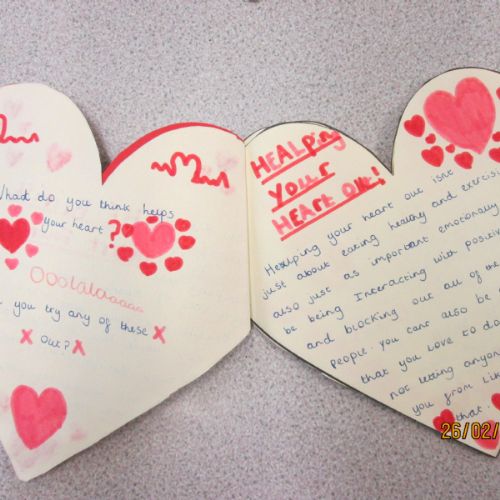 What do you think helps
your heart ?
Ooolalaaaaaa
you try any of these
X Out? X
HEALPing
YOUR
HEART OUt!
Healping your heart out isnt
just about eating healthy and exercisi
also just as important emotionally
be being Interacting with positiv
and blocking out all of the
people. you cant also be
that you love to do
not letting anyon
you from Lik
that.
26/02/